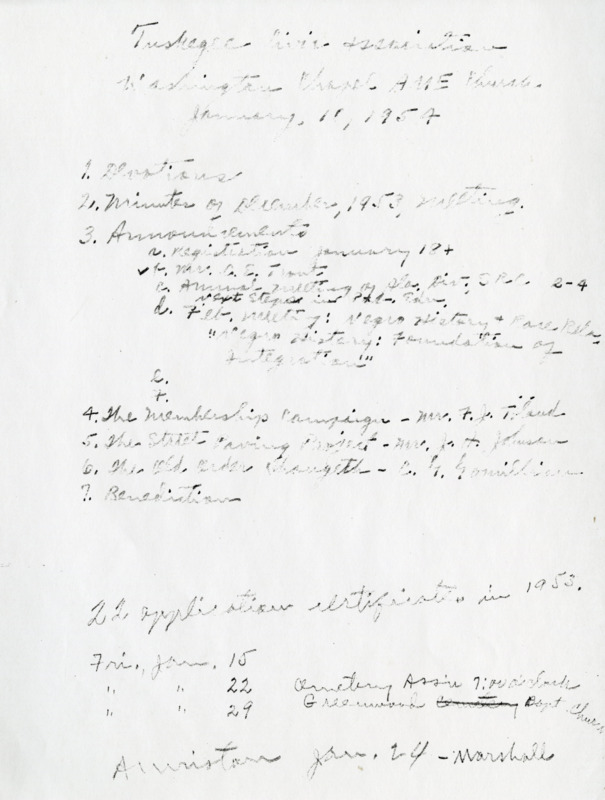 Tuskegee Civic Association
Washington Chapel AME Church
January, 10, 1954
1. Devotions
2. Minutes of December, 1953, meeting.
3. Announcements
a. Registration January 18+
✓ b. Mr. C. E. Trout
c. Annual meeting of Ala. Div., S.R.C. 2-4
Next Steps in Pub. Edu.
d. Feb. meeting: Negro History + Race Rela.
"Negro History: Foundation of
Integration"
e.
f.
4. The Membership Campaign - Mr. F. J.
5. The Street Paving Project - Mr. J. A. Johnson
6. The Old Order Changeth - C. G. Gomillion
7. Benediction
22 application certificates in 1953.
Fri., Jan. 15
" " 22 Cemetery Ass'n 7:00 o'clock
" " 29 Greenwood Cemetery Bapt. Church
Anniston Jan. 24 - Marshall